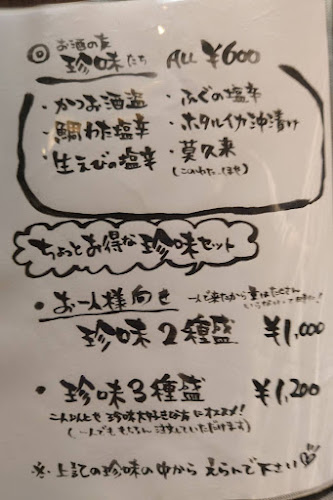 ◎ お酒の友
珍味たち ALL ¥600
・かつお酒盗 ・ふぐの塩辛
・鯛わた塩辛 ・ホタルイカ沖漬け
・生えびの塩辛 ・莫久来
(このわた、ほや)
ちょっとお得な珍味セット
・お一人様向き 一人で来たから量はたくさん
珍味2種盛 ¥1,000
・珍味3種盛 ¥1,200
珍味大好きな方にオススメ!
(一人でももちろん注文していただけます)
※上記の珍味の中からえらんで下さい